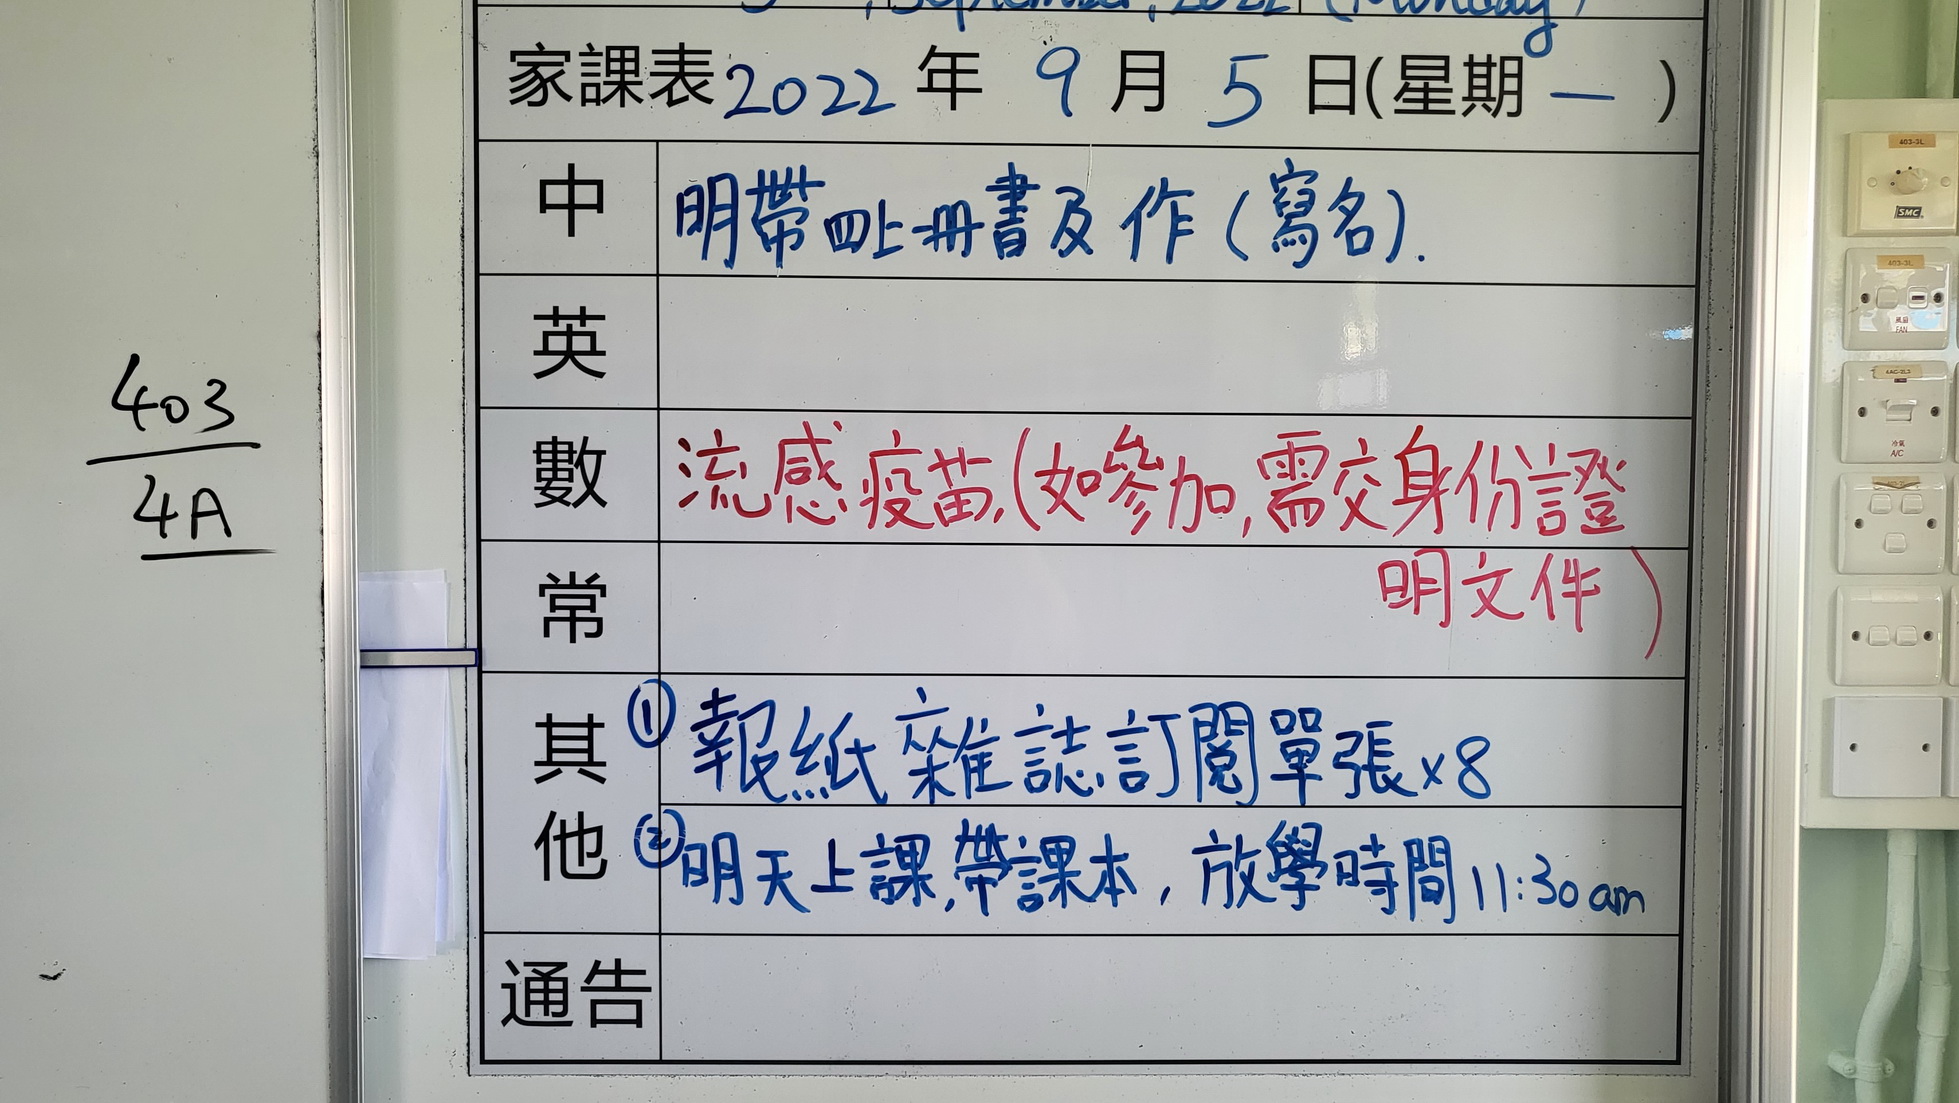 September, 2022 (Monday)
家課表 2022 年 9 月 5 日(星期一)
中 明帶四上一冊書及作(寫名).
英
數 流感疫苗,(如參加,需交身份證
常 明文件)
其他
① 報紙雜誌訂閱單張x8
② 明天上課,帶課本,放學時間11:30am
通告
403
4A
403-3L
SMC
403-3L
風扇
FAN
冷氣
A/C